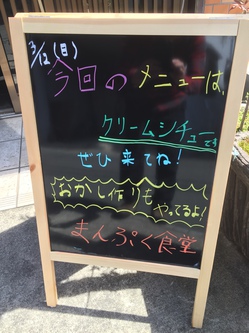 3/12(日)
今回の メニューは、
クリームシチューです
ぜひ 来てね!
おかし作りも
やってるよ!
まんぷく食堂